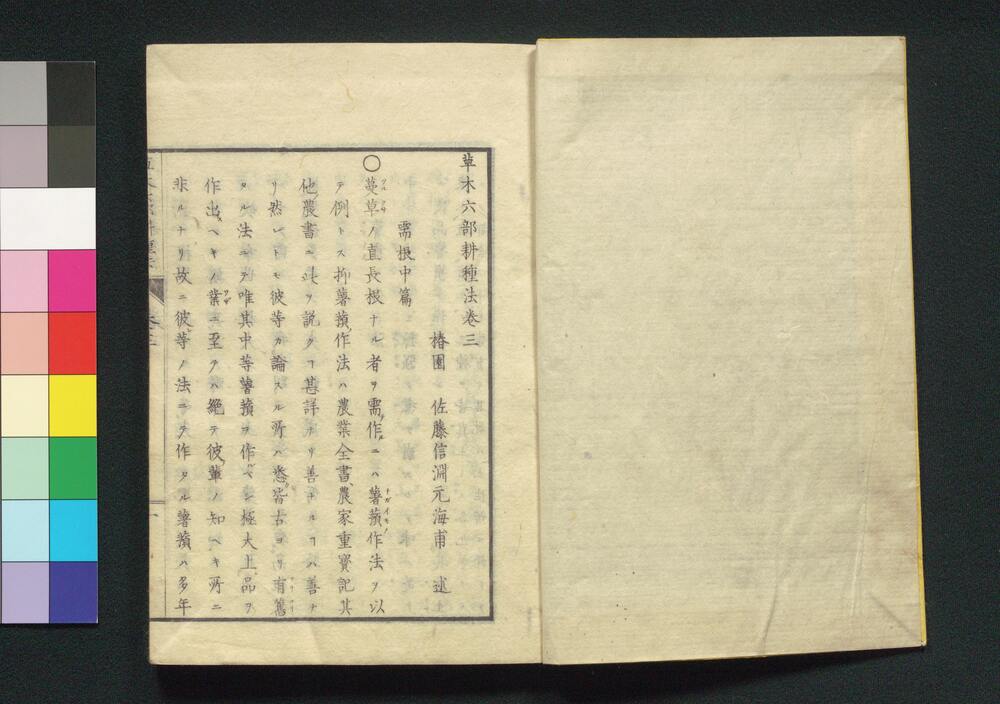 草木六部耕種法巻三
椿園 佐藤信淵元海甫 述
需根中篇
○蔓草ノ直長根ナル者ヲ需作ニハ薯蕷作法ヲ以
テ例トス抑薯蕷作法ハ農業全書、農家重寳記其
他農書ニ此ヲ説クヿ甚詳ナリ善ナルヿハ善ナ
リ然レトモ彼等カ論スル所ハ悉皆古ヨリ有舊
タル法ニテ唯其中等薯蕷ヲ作ベシ極大上品ヲ
作出ベキノ業ニ至テハ絶テ彼輩ノ知ベキ所ニ
非ルナリ故ニ彼等ノ法ニテ作タル薯蕷ハ多年